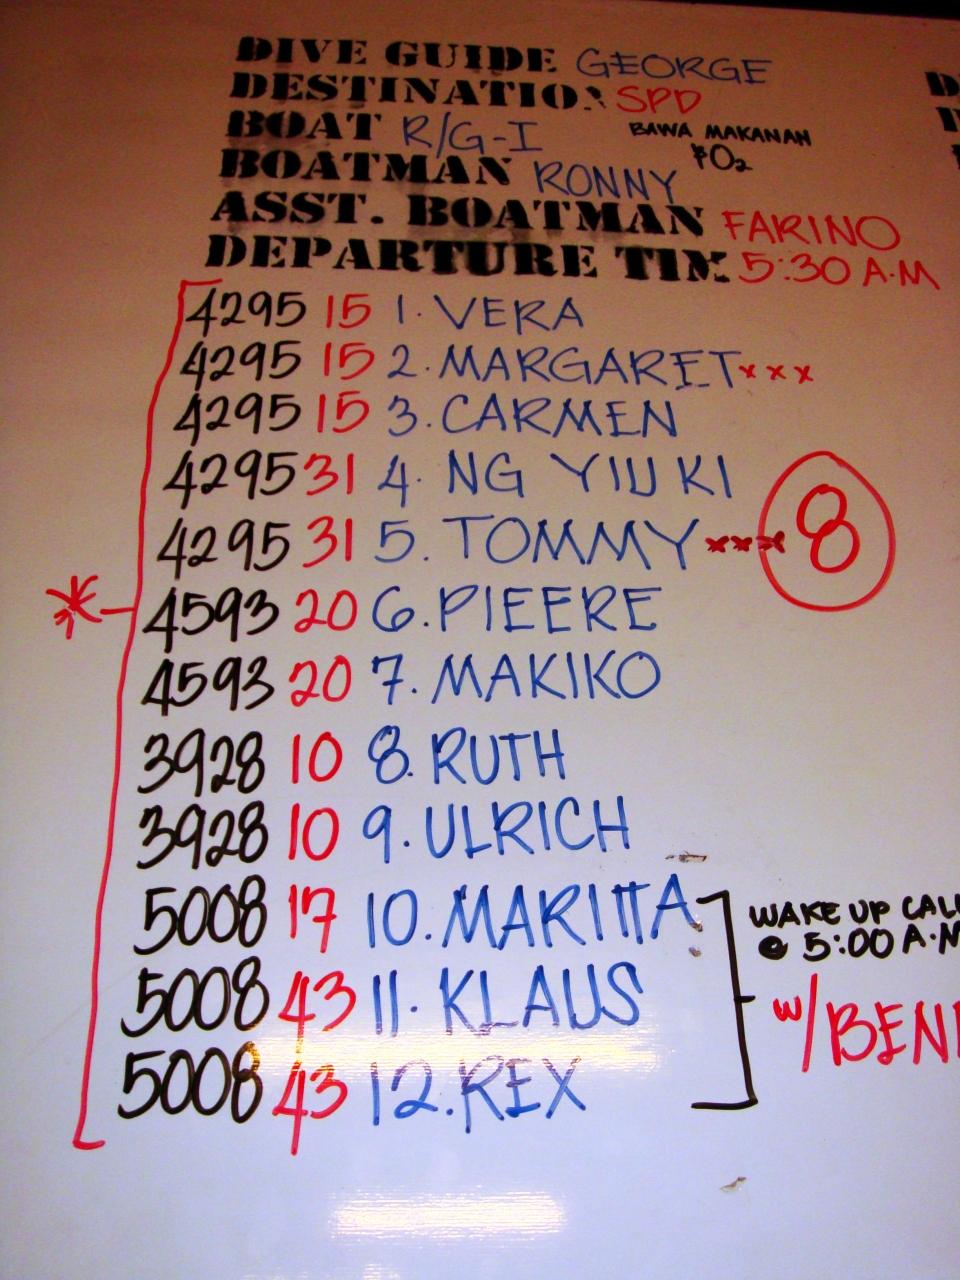 DIVE GUIDE GEORGE
DESTINATION SPD
BOAT R/G-I BAWA MAKANAN
O2
BOATMAN RONNY
ASST. BOATMAN FARINO
DEPARTURE TIM 5:30 A.M
4295 15 1. VERA
4295 15 2. MARGARET xxx
4295 15 3. CARMEN
4295 31 4. NG YIU KI
8
4295 31 5. TOMMY xxx
4593 20 6. PIEERE
4593 20 7. MAKIKO
3928 10 8. RUTH
3928 10 9. ULRICH
5008 17 10. MARITTA
WAKE UP CALL
@ 5:00 A.M
5008 43 11. KLAUS
w/BENI
5008 43 12. REX